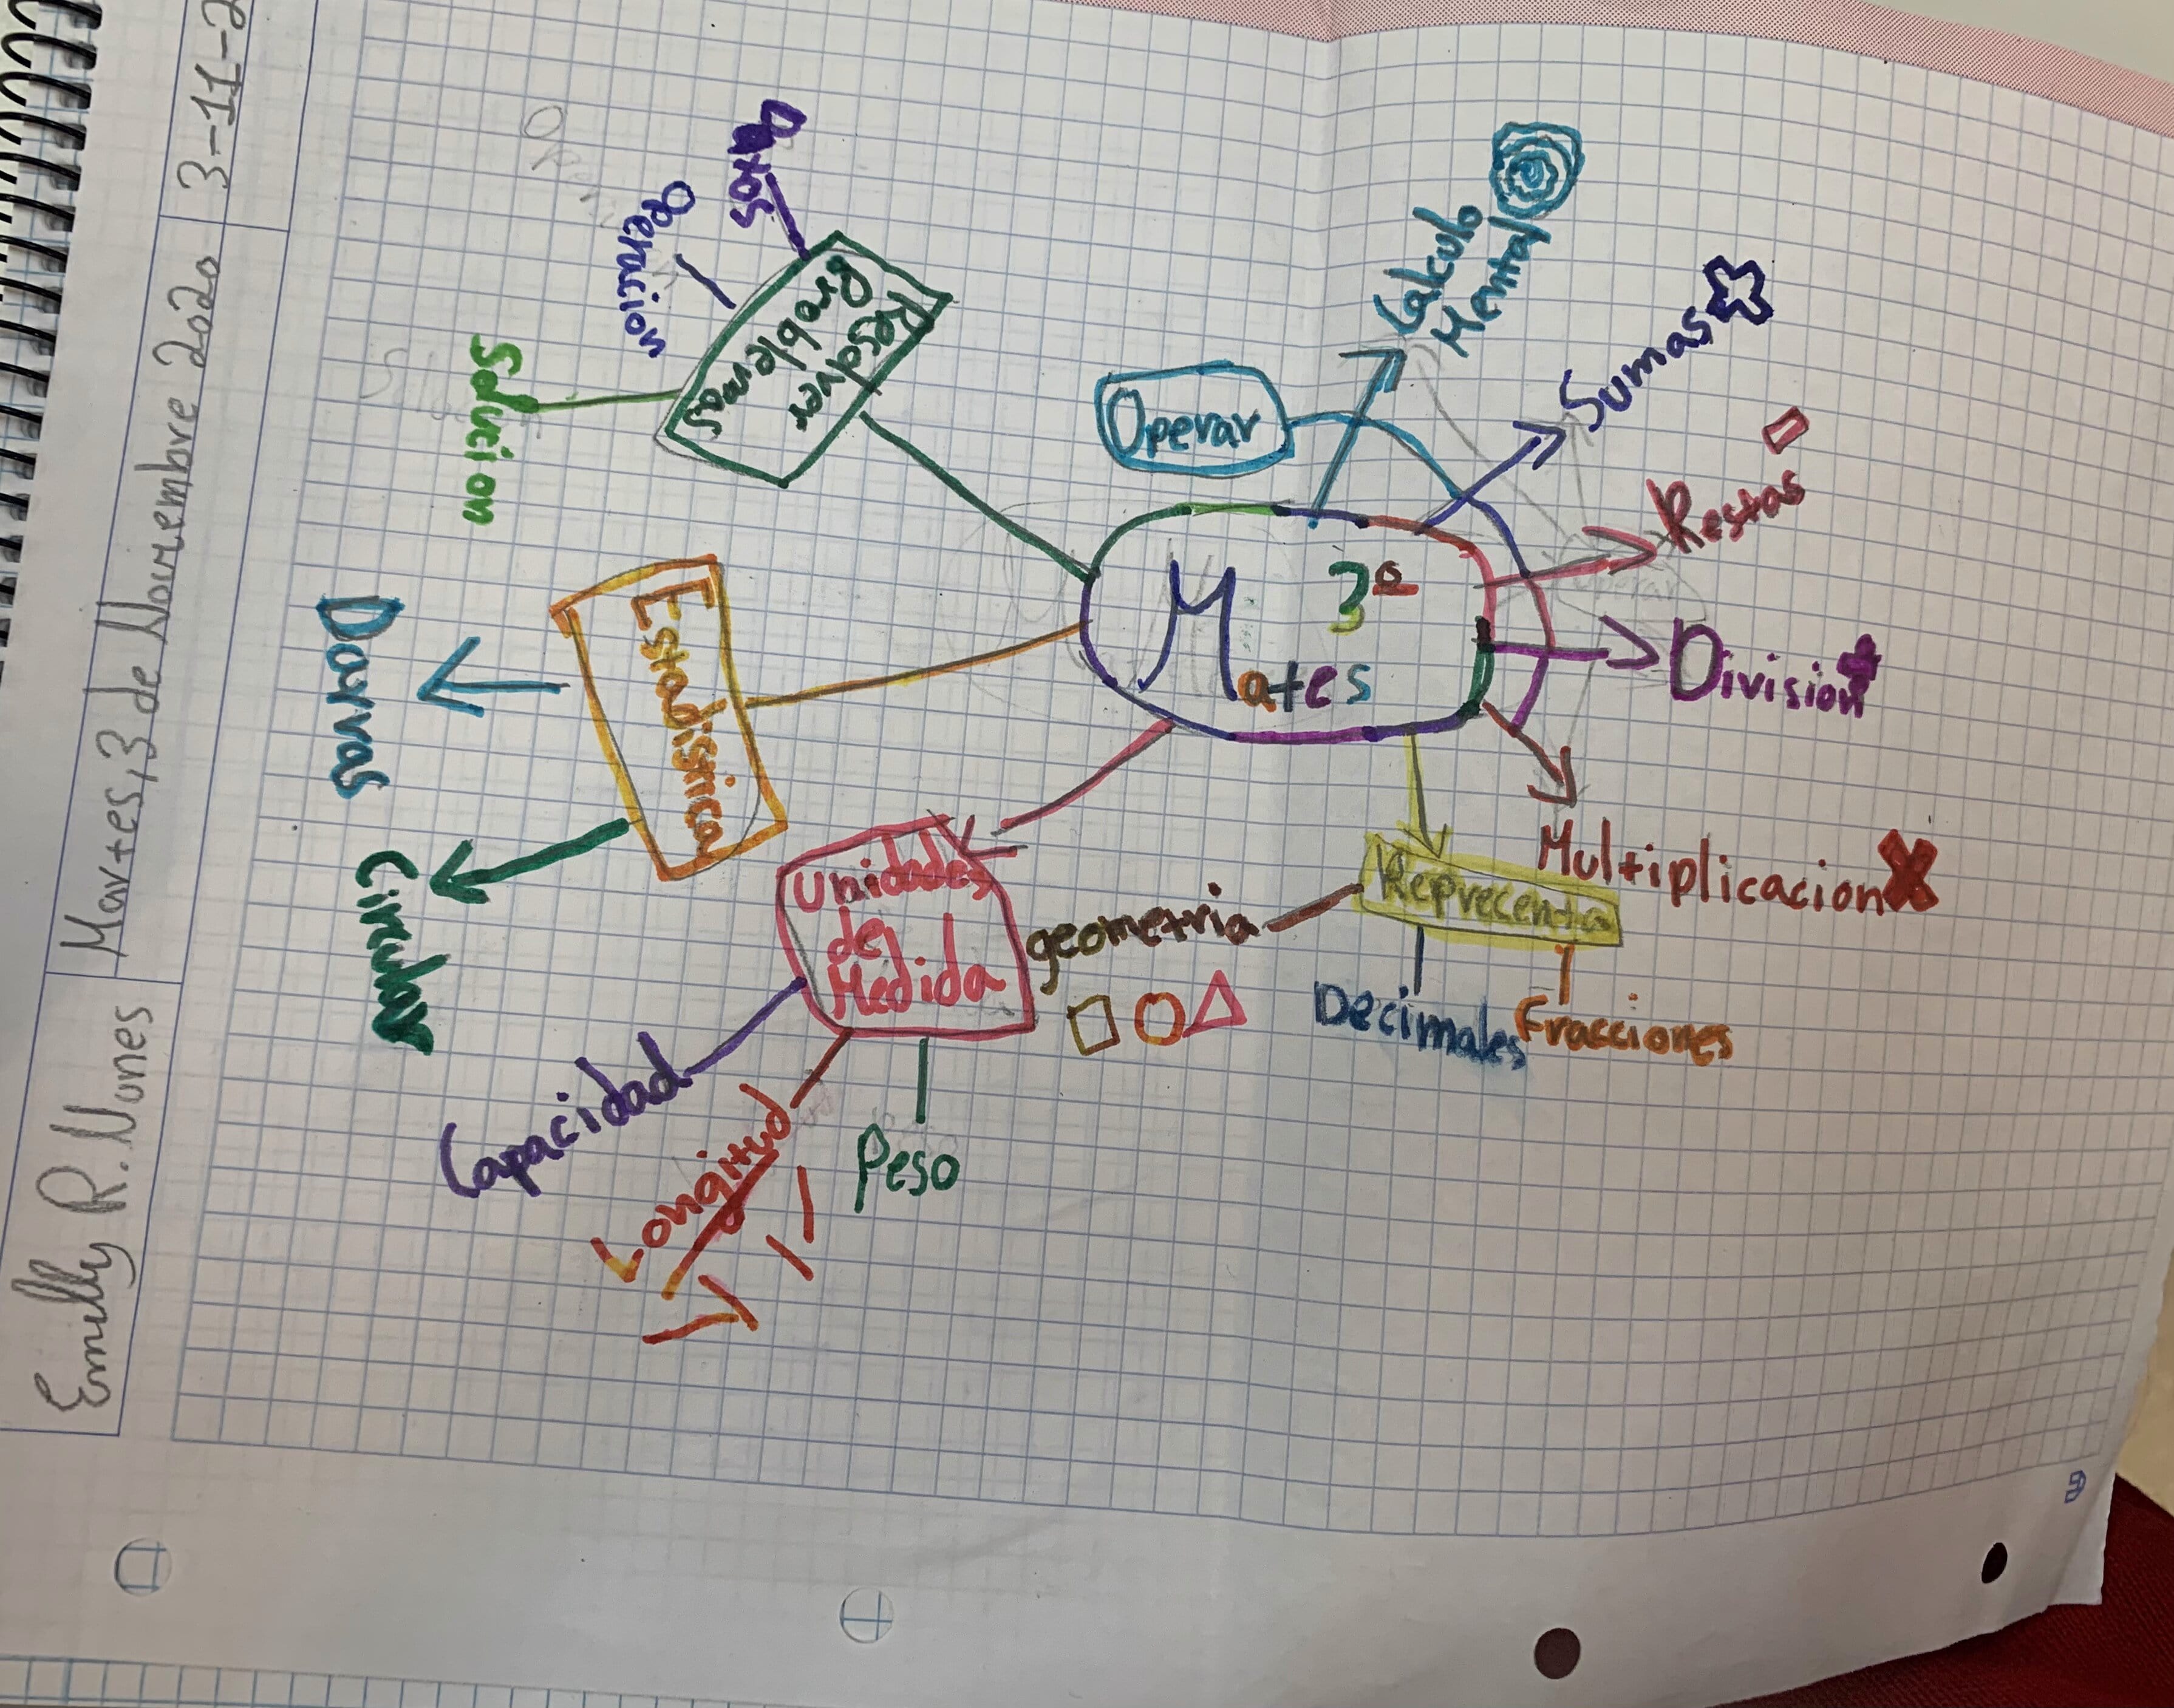 Emilly R. Nunes
Martes, 3 de Noviembre 2020
3-11-2
Mates 3º
Operar
Calculo
Mental
Sumas
Restas -
Division
Multiplicacion X
Reprecenta
geometria
Decimales
Fracciones
Unidades
de
Medida
Capacidad
Longitud
Peso
Estadistica
Circular
Resolver
Problemas
Datos
Operacion
Solucion